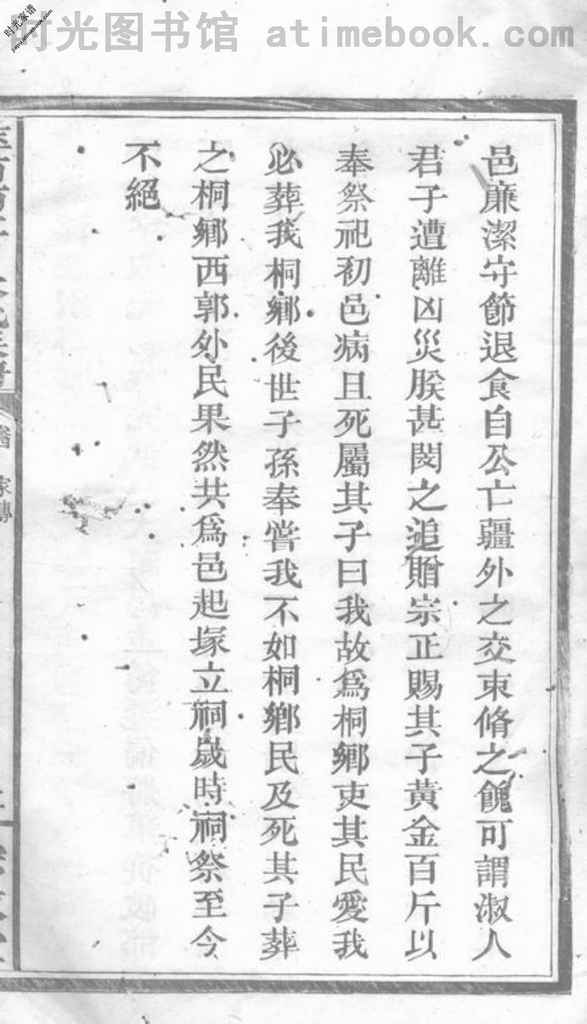 时光图书馆 atimebook.com
邑廉潔守節退食自公亡疆外之交束脩之餽可謂淑人
君子遭離凶災朕甚閔之追贈宗正賜其子黃金百斤以
奉祭祀初邑病且死屬其子曰我故爲桐鄉吏其民愛我
必葬我桐鄉後世子孫奉嘗我不如桐鄉民及死其子葬
之桐鄉西郭外民果然共爲邑起塚立祠歲時祠祭至今
不絕
家傳